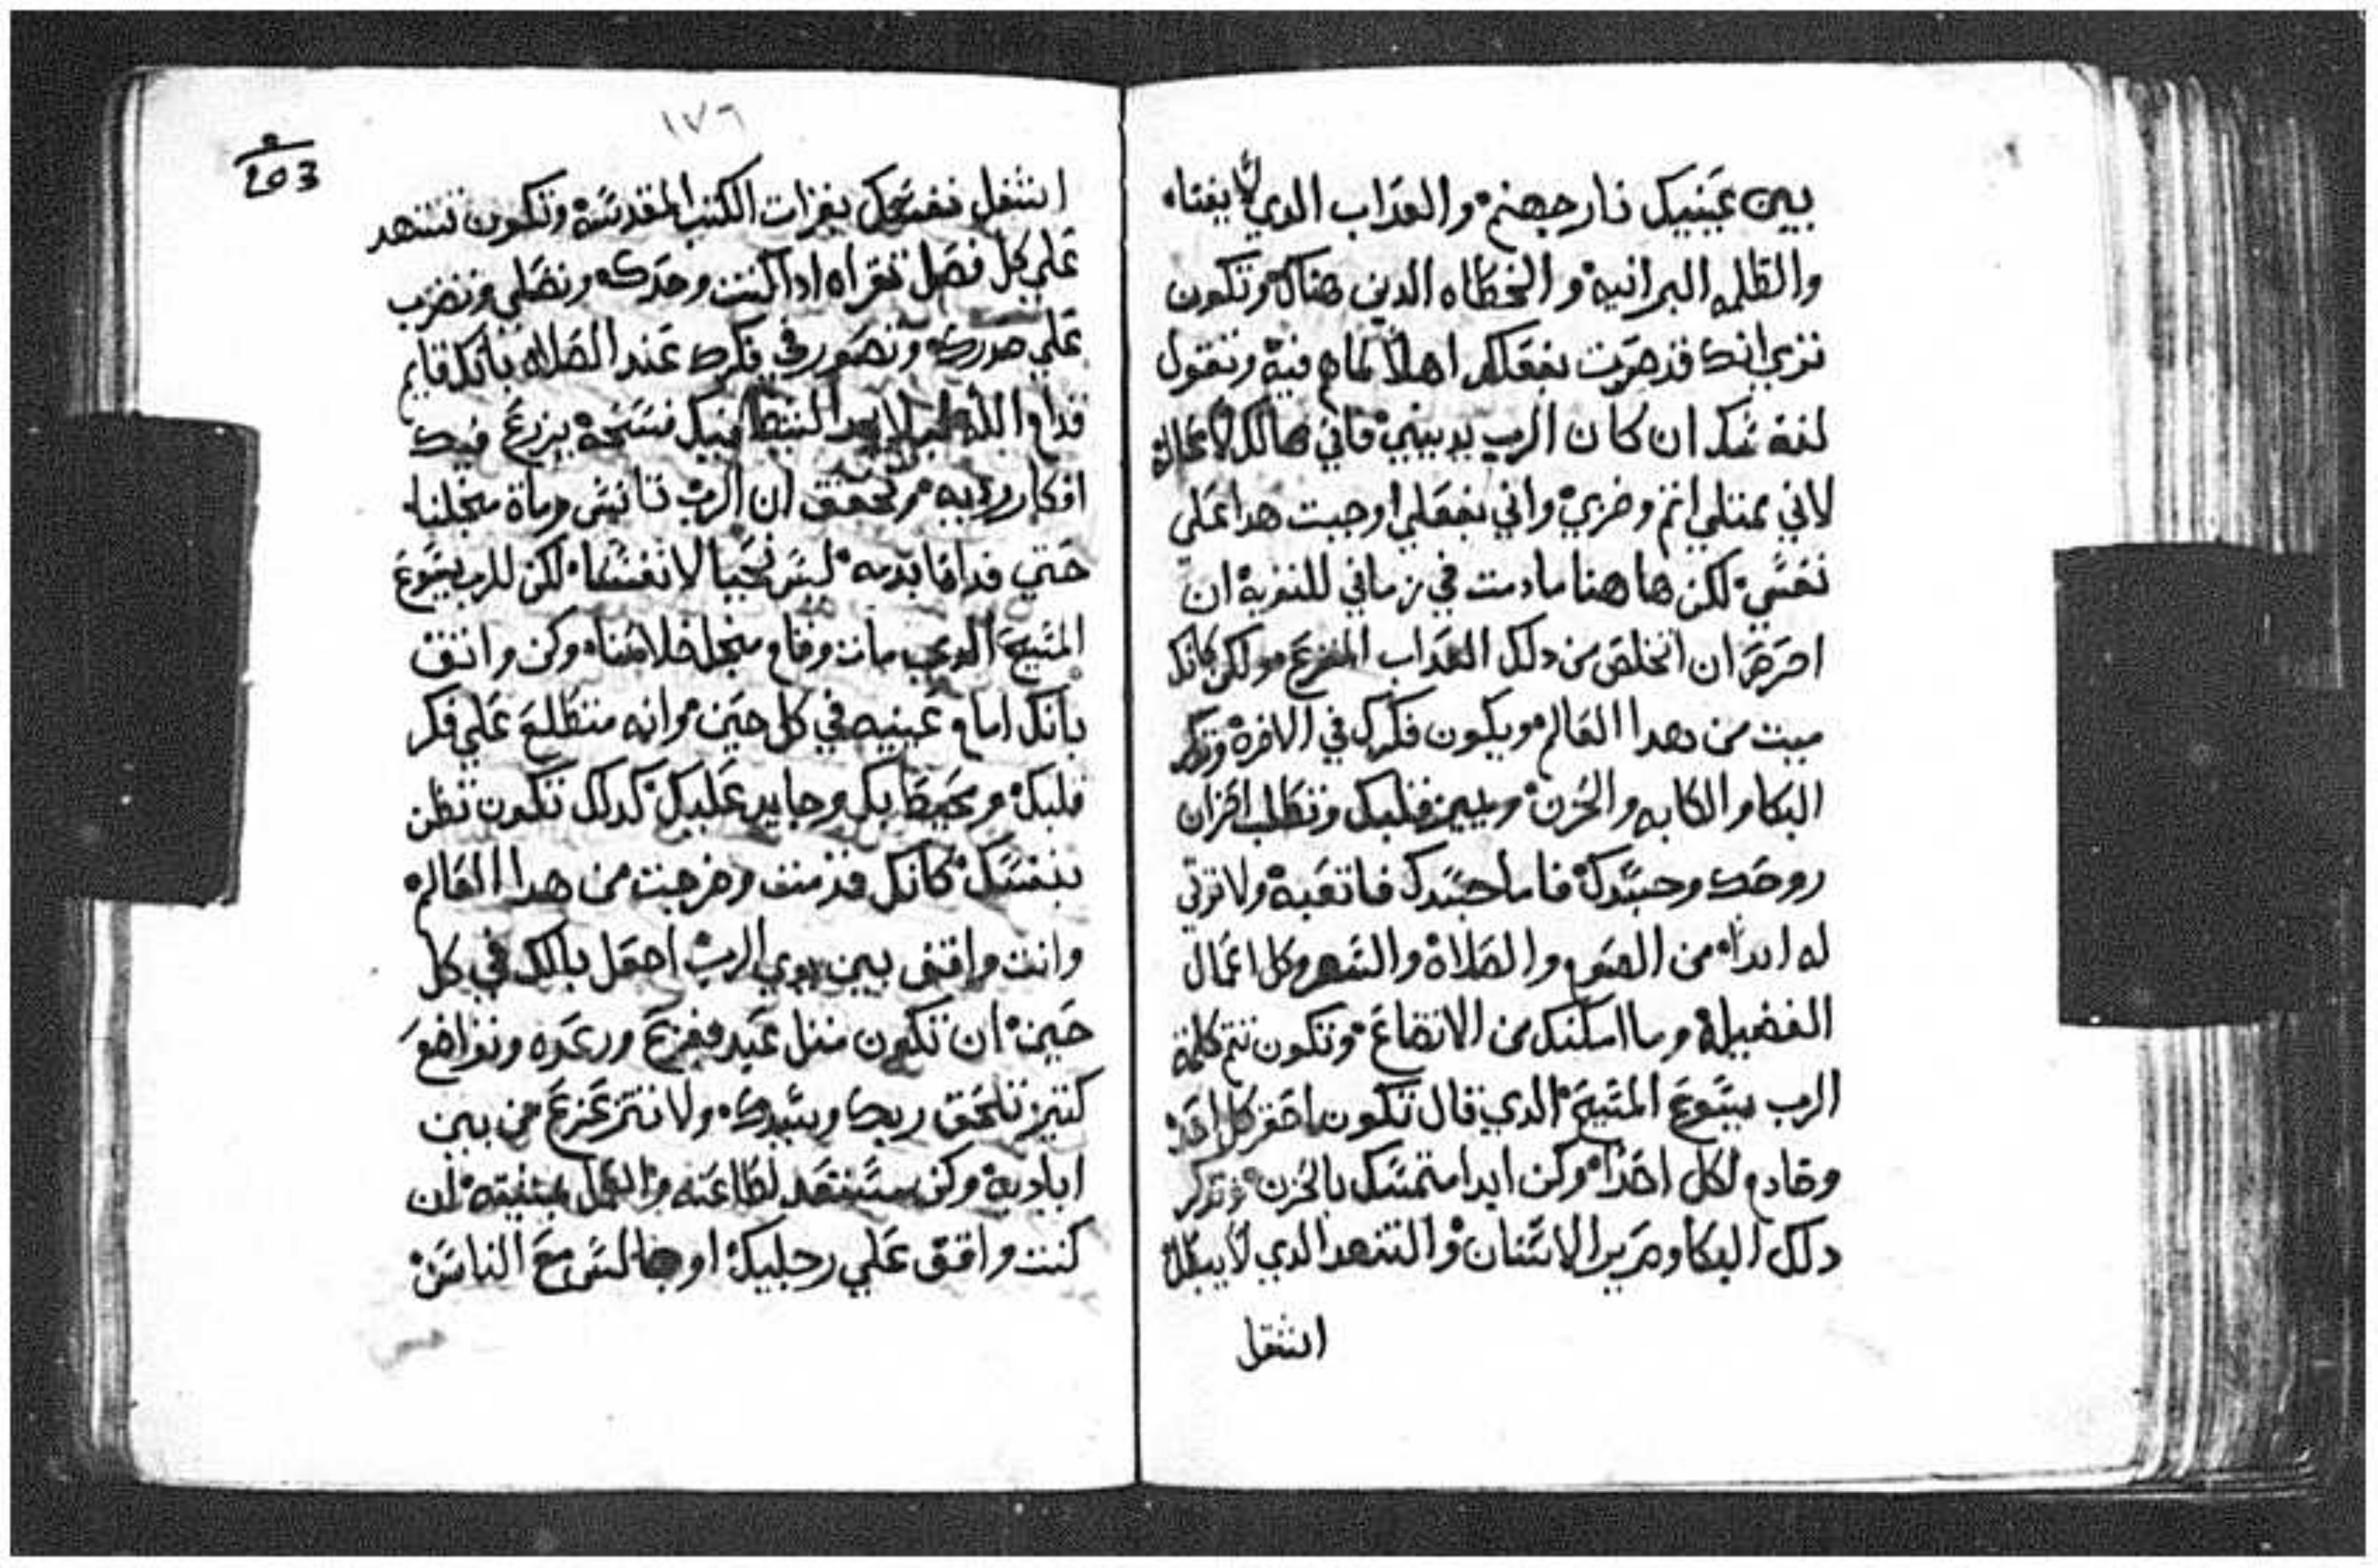 بين عينيك نار جهنم والعداب الدي لا يفنا
والظلمه البرانيه والخطاه الدين هناك وتكون
تري انك قد صرت بفعلك اهلا تمام فيه وتقول
لنفسك ان كان الرب يدينني فاني هالك لا محاله
لاني ممتلي اتم وخزي واني بفعلي اوجبت هدا علي
نفسي لكن ها هنا ما دمت في زماني للتوبه ان
احرص ان اتخلص من دلك العداب المفزع وكن كانك
ميت من هدا العالم ويكون فكرك في الاخره وتدكر
البكا والكابه والحزن وتطلب
روحك وجسدك فاما جسدك فاتعبه ولا ترتي
له ابدا من الصوم والصلاة والسهر وكل اعمال
الفضيلة وما امكنك من الاتضاع وتكون تتم كلمة
الرب يسوع المسيح الدي قال تكون احقر كل احد
وخادم لكل احدا وكن ابدا متمسك بالحزن وتدكر
دلك البكا وصرير الاسنان والتنهد الدي لا يبطل
اشغل
١٧٦
اشغل نفسك بقرات الكتب المقدسة وتكون تتنهد
علي كل فصل تقراه ادا كنت وحدك وتصلي وتضرب
علي صدرك وتصور في فكرك عند الصلاه بانك قايم
قدام الله ليلا يجد الشيطان فيك فسحة يزرع فيك
افكار رديه وتحقق ان الرب تانس ومات من اجلنا
حتي قدامنا بدمه ليس نحيا لانفسنا لكن للرب يسوع
المسيح الدي مات وقام من اجل خلاصنا وكن واتق
بانك امام عينيه في كل حين وانه متطلع علي فكر
قلبك ومحيط بك وجايد عليك كدلك تكون تظن
بنفسك كانك قد مت وخرجت من هدا العالم
وانت واقف بين يدي الرب اجعل بالك في كل
حين ان تكون متل عبد بفزع ورعده وتواضع
كتير تلحق ربك وسيدك ولا تتزعزع من بين
اياديه وكن مستعد لطاعته والعمل بمشيته ان
كنت واقف علي رجليك او جالس مع الناس